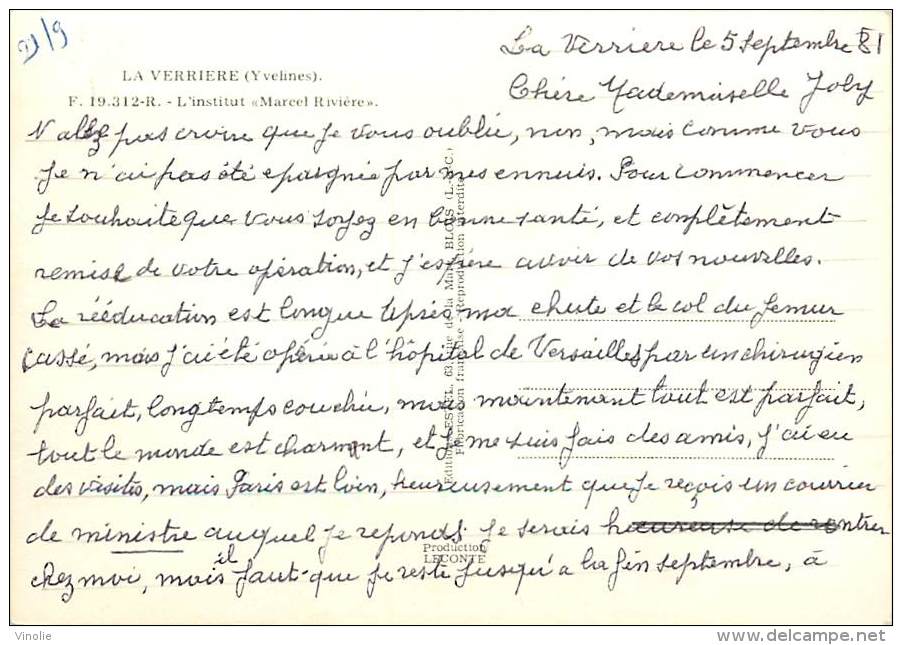 D/9
La Verriere le 5 Septembre 81
LA VERRIERE (Yvelines).
F. 19.312-R. - L'institut «Marcel Rivière».
Chère Mademoiselle Joly
N allez pas croire que je vous oublie, non, mais comme vous
je n'ai pas été epargnée par mes ennuis. Pour commencer
je souhaite que vous soyez en bonne santé, et complètement
remise de votre opération, et j'espère avoir de vos nouvelles.
La rééducation est longue après ma chute et le col du femur
cassé, mais j'ai été opérée à l'hôpital de Versailles par un chirugien
parfait, longtemps couchée, mais maintenant tout est parfait,
tout le monde est charmant, et je me suis fais des amis, j'ai eu
des visites, mais Paris est loin, heureusement que je reçois un courrier
de ministre auquel je reponds. Je serais heureuse de rentrer
chez moi, mais il faut que je reste jusqu'a la fin septembre, à
Editions LESTREL, 63, Rue de la Mare, BLOIS (L.-&-C.)
Fabrication française - Reproduction interdite
Production
LECONTE
Vinolie
http://www.delcampe.net